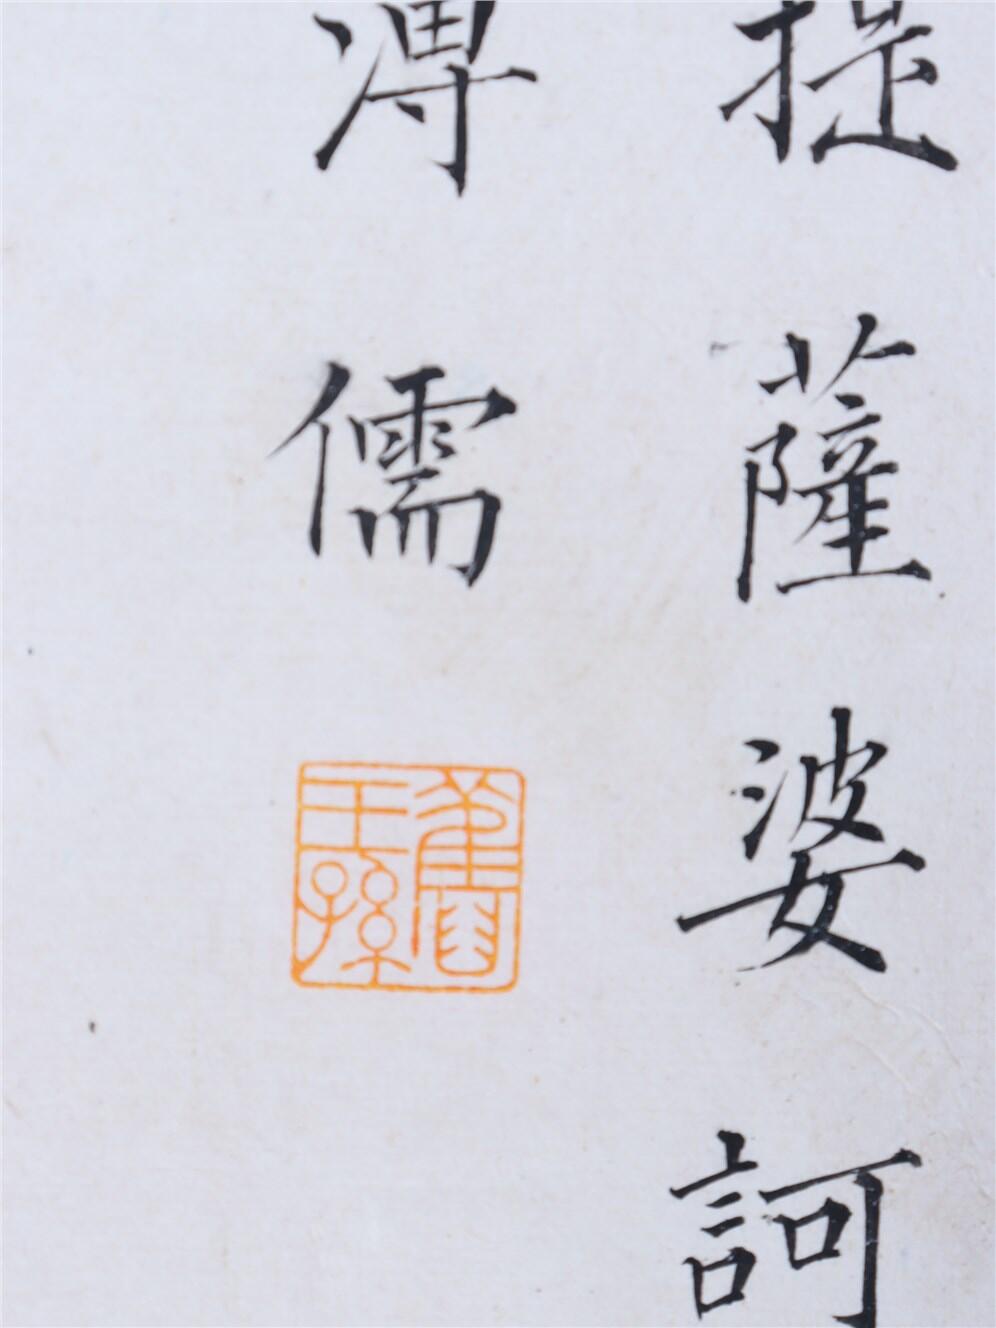 提薩婆訶
溥儒
舊王孫